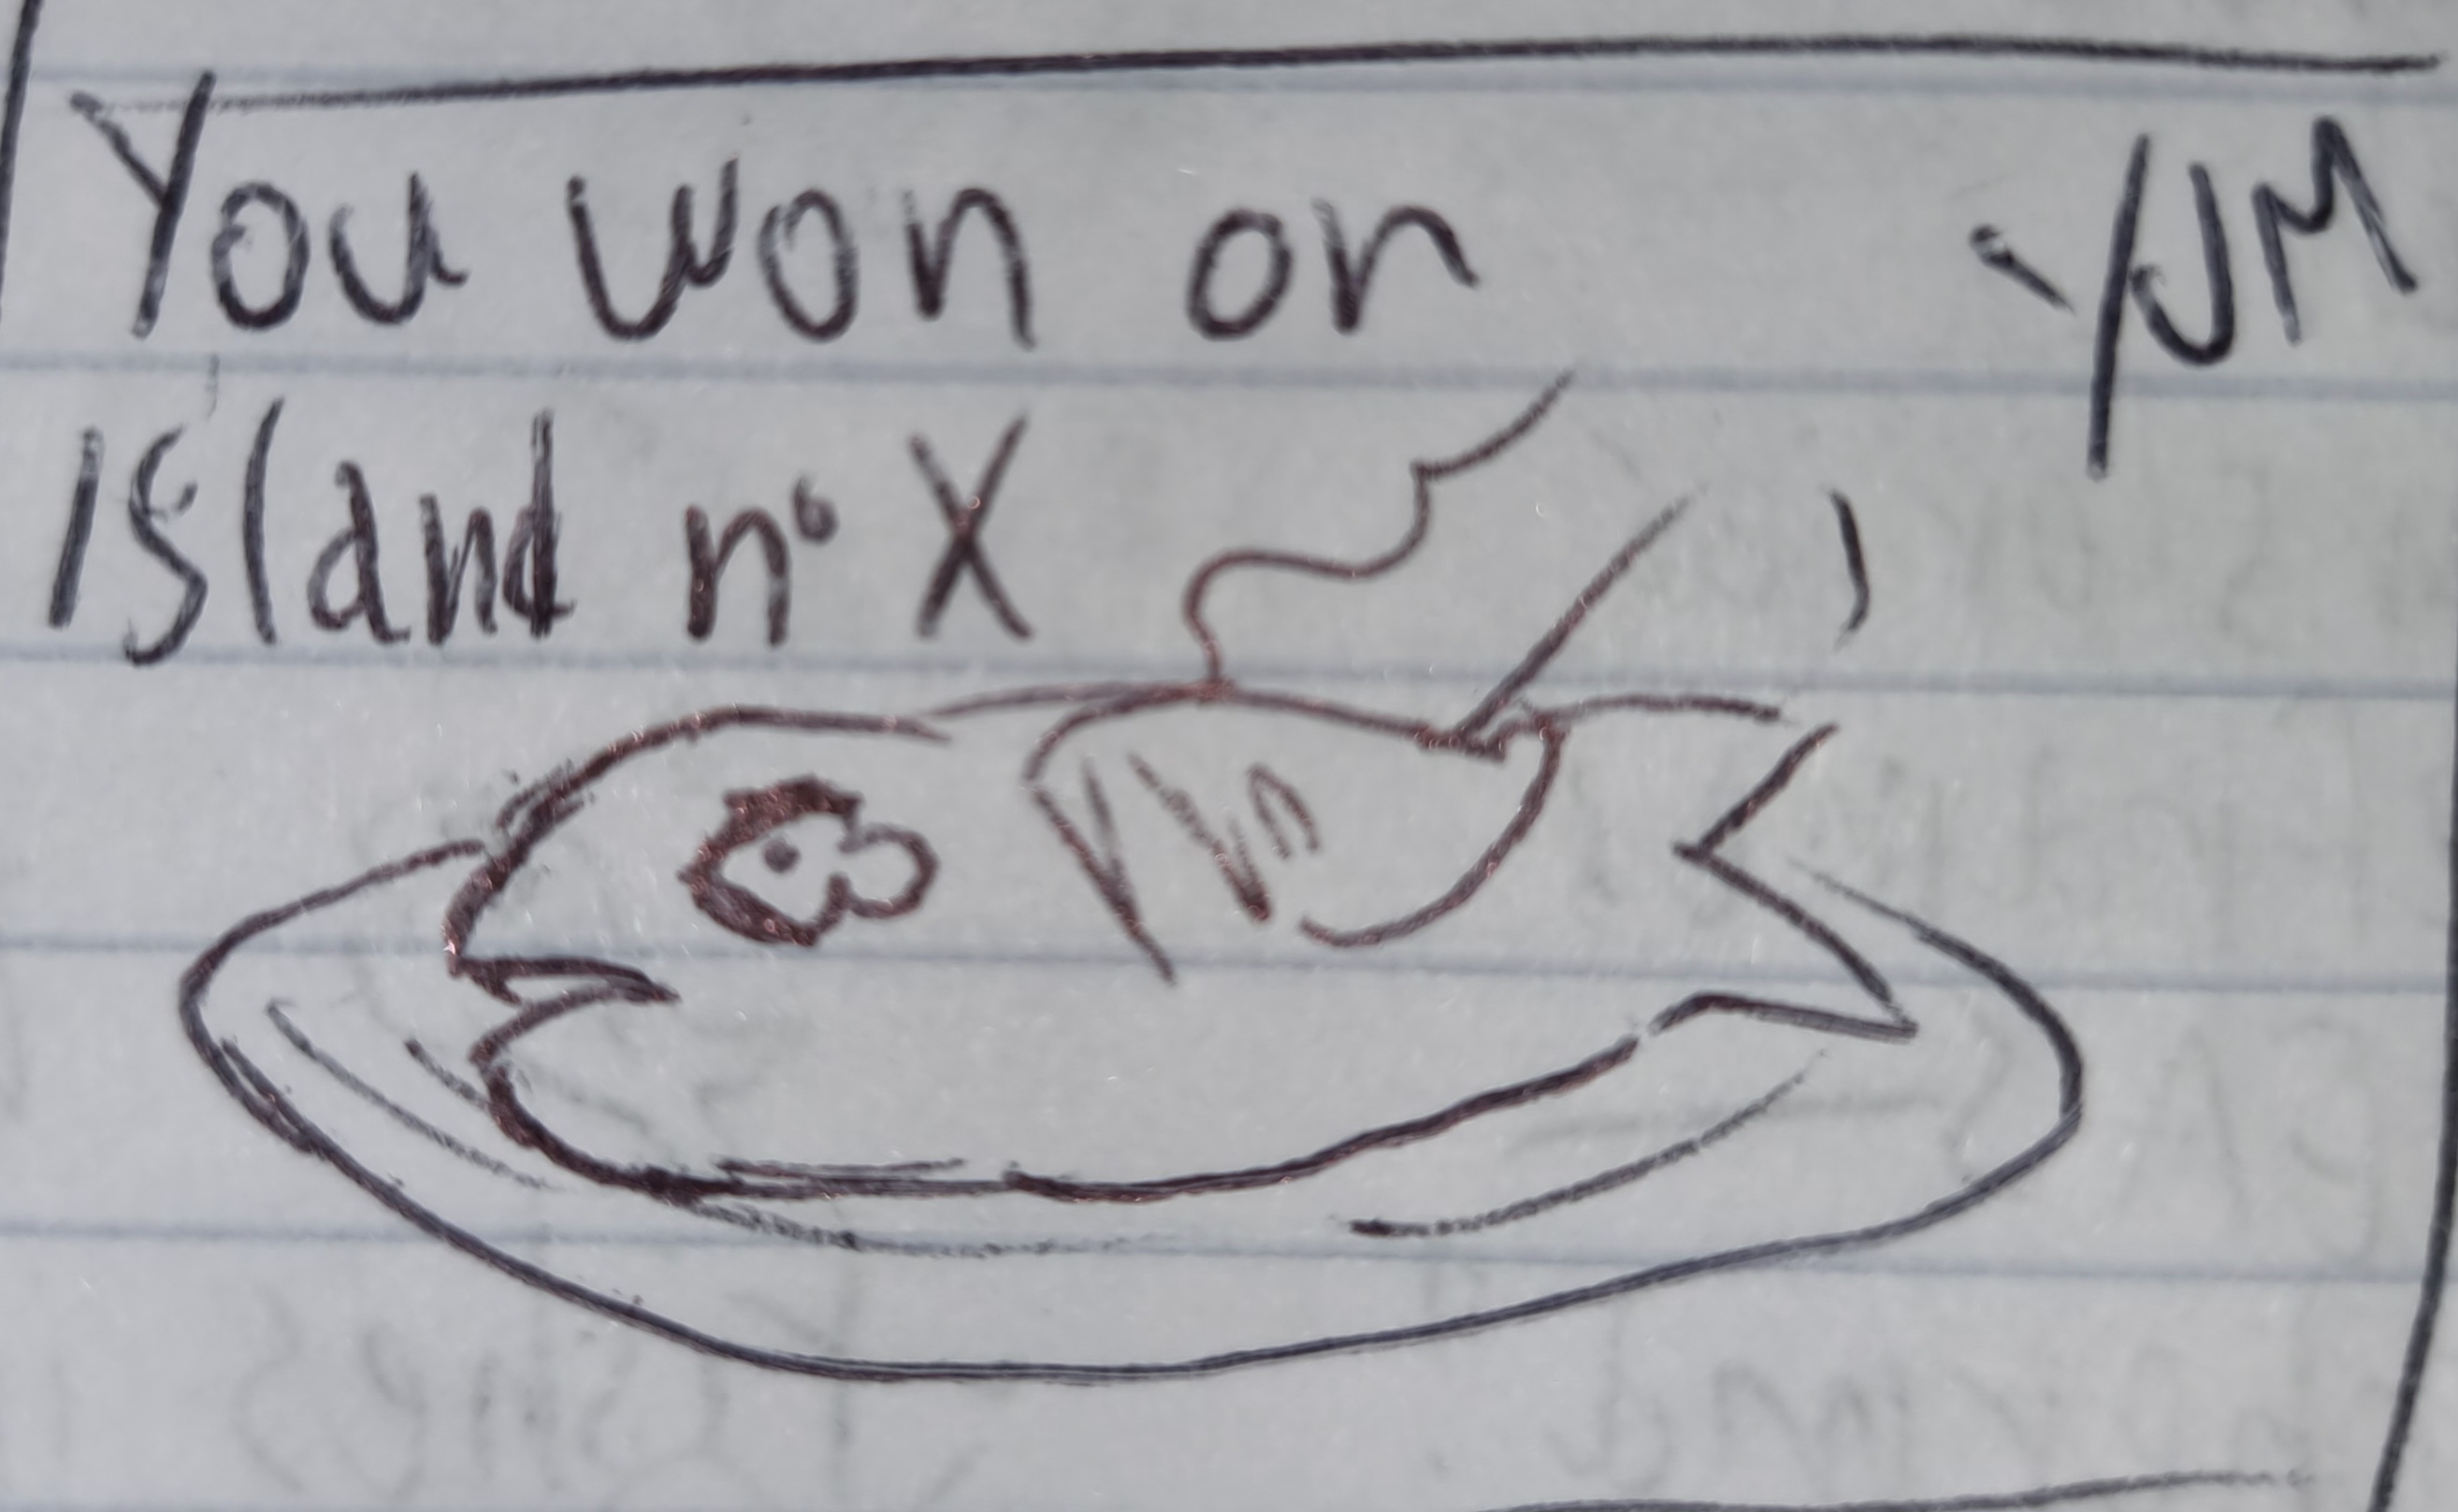 You won on
Island n° X
YUM